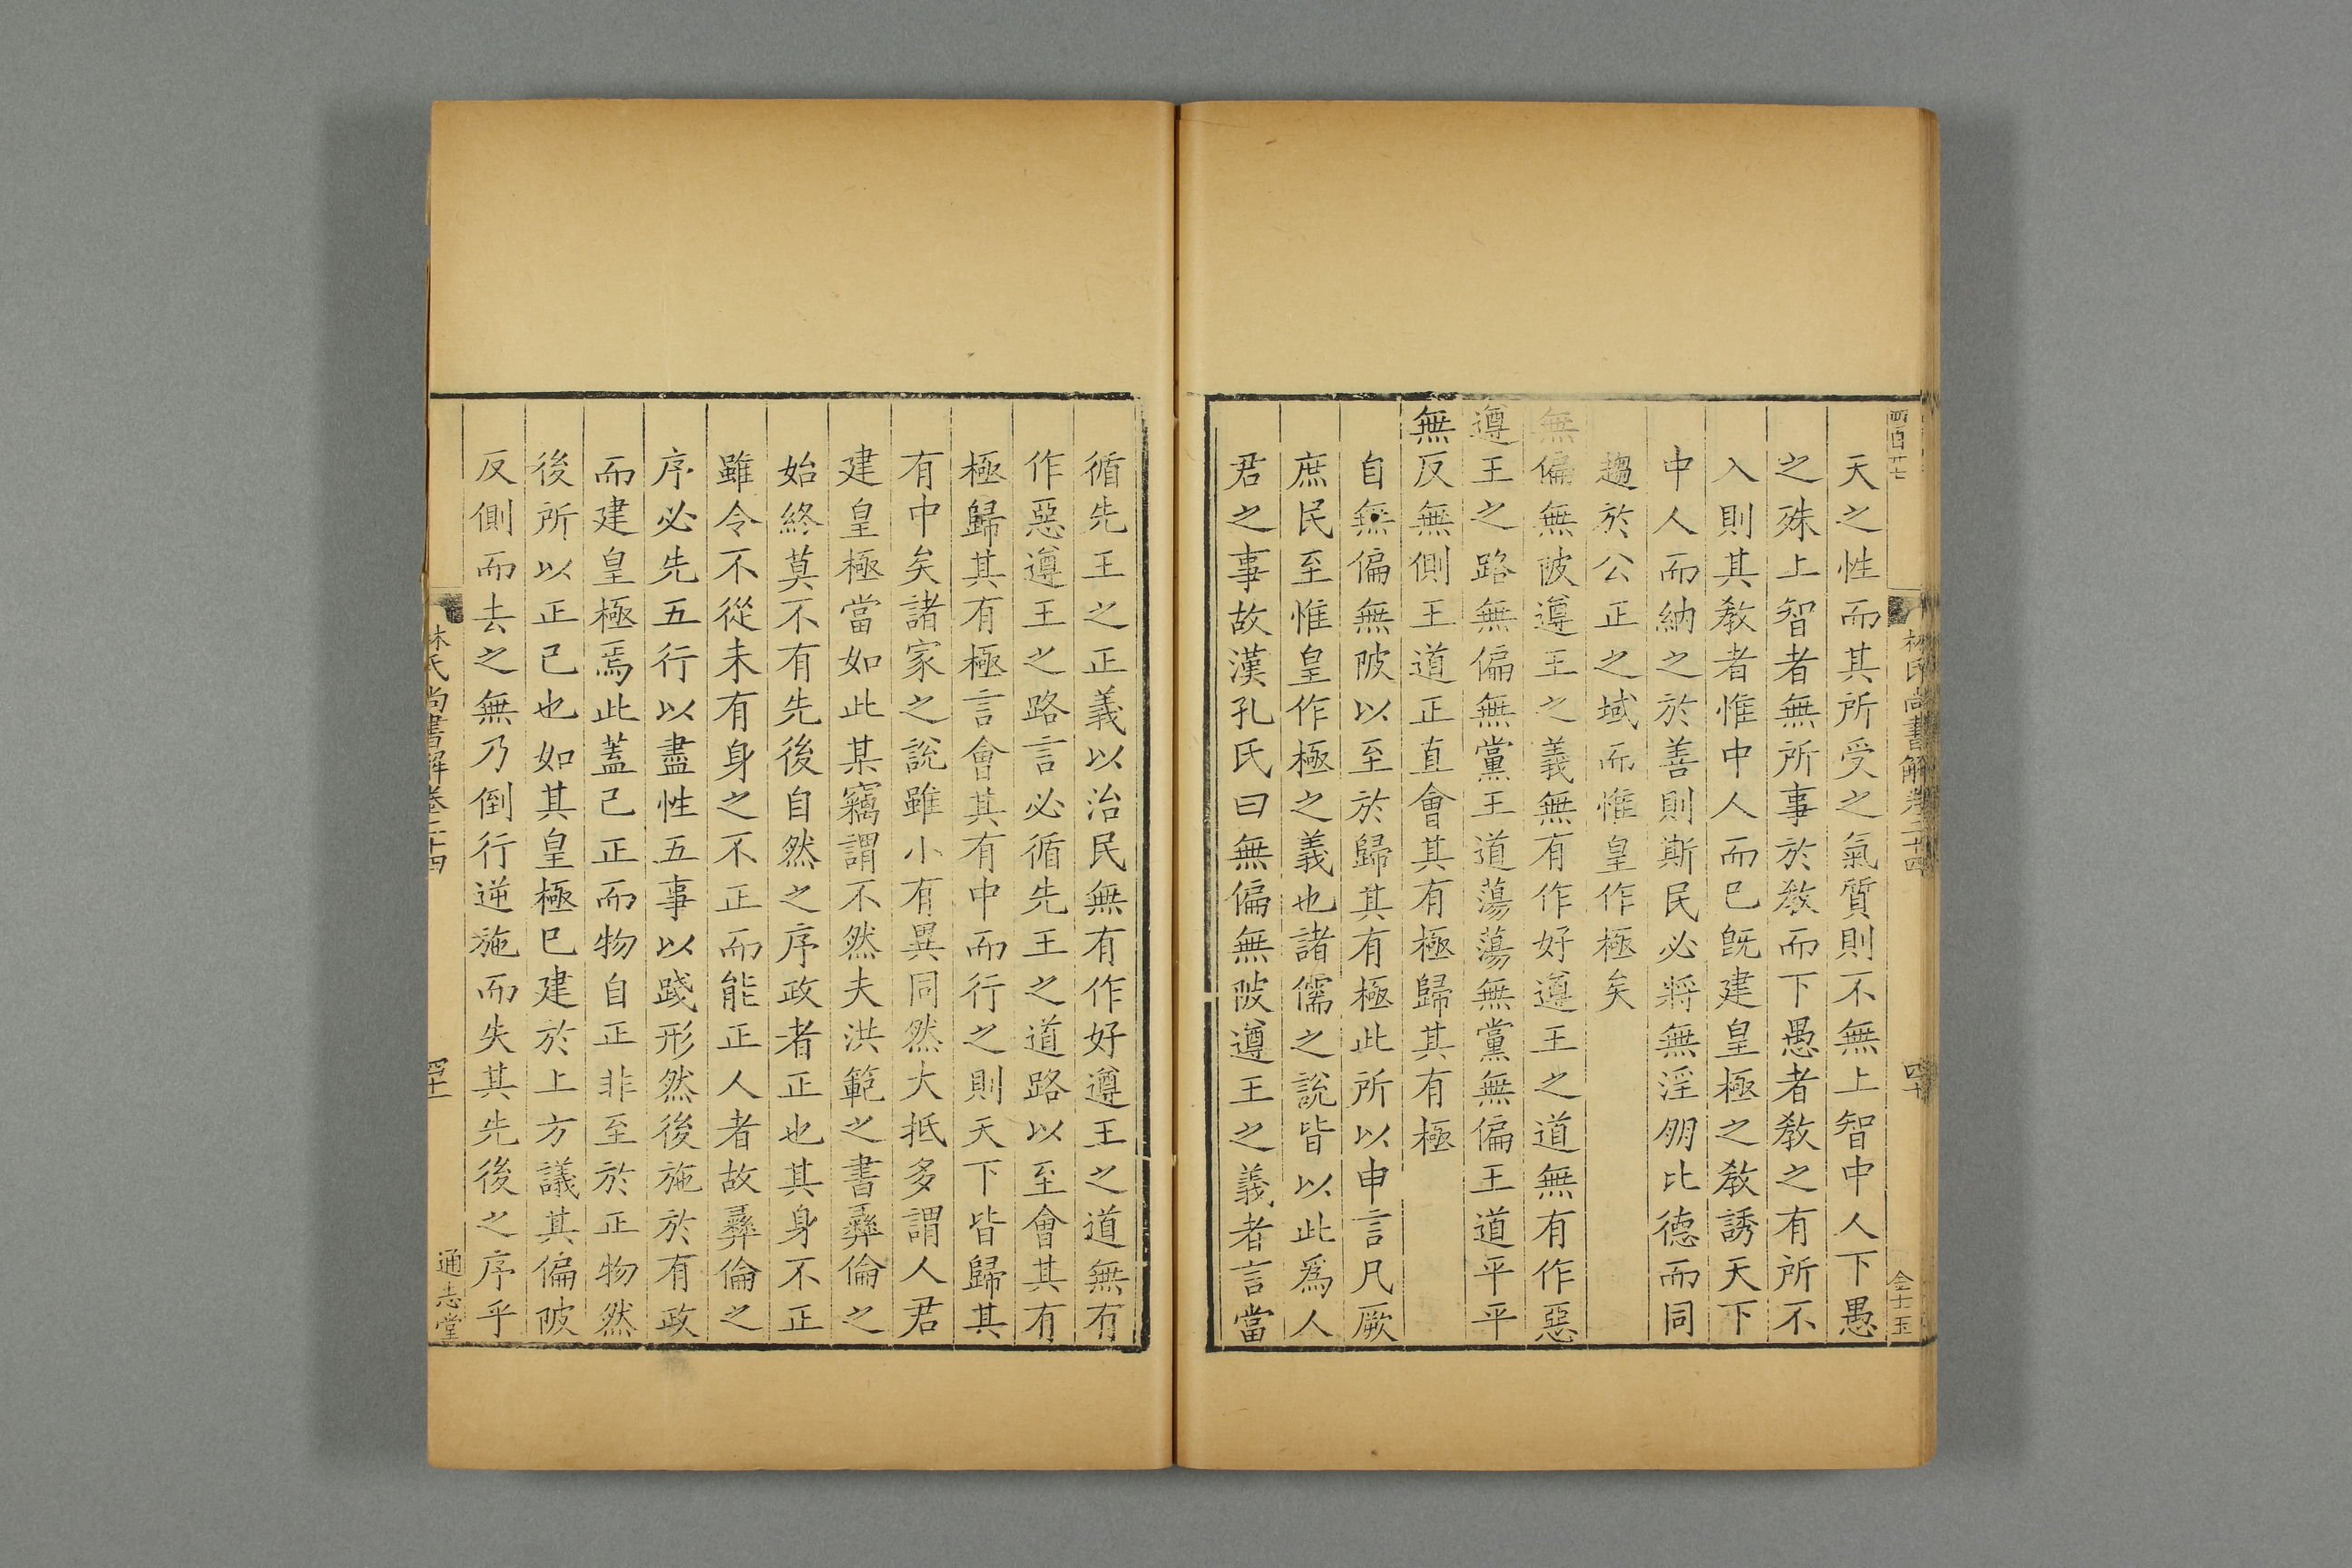 林氏尚書解卷二十四
四十
金士玉
天之性而其所受之氣質則不無上智中人下愚
之殊上智者無所事於教而下愚者教之有所不
入則其教者惟中人而已旣建皇極之教誘天下
中人而納之於善則斯民必將無淫朋比德而同
趨於公正之域而惟皇作極矣
無偏無陂遵王之義無有作好遵王之道無有作惡
遵王之路無偏無黨王道蕩蕩無黨無偏王道平平
無反無側王道正直會其有極歸其有極
自無偏無陂以至於歸其有極此所以申言凡厥
庶民至惟皇作極之義也諸儒之說皆以此爲人
君之事故漢孔氏曰無偏無陂遵王之義者言當
循先王之正義以治民無有作好遵王之道無有
作惡遵王之路言必循先王之道路以至會其有
極歸其有極言會其有中而行之則天下皆歸其
有中矣諸家之說雖小有異同然大抵多謂人君
建皇極當如此某竊謂不然夫洪範之書彝倫之
始終莫不有先後自然之序政者正也其身不正
雖令不從未有身之不正而能正人者故彝倫之
序必先五行以盡性五事以踐形然後施於有政
而建皇極焉此蓋己正而物自正非至於正物然
後所以正己也如其皇極已建於上方議其偏陂
反側而去之無乃倒行逆施而失其先後之序乎
林氏尚書解卷二十四
四十一
通志堂